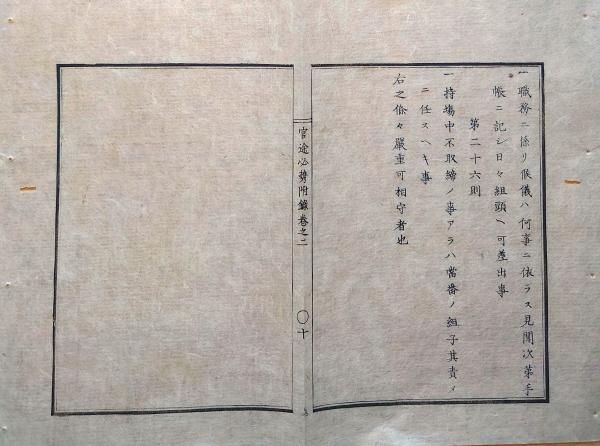 一職務ニ係リ候儀ハ何事ニ依ラス見聞次第手
帳ニ記シ日々組頭ヘ可差出事
第二十六則
一持場中不取締ノ事アラハ當番ノ組子其責メ
ニ任スヘキ事
右之條々嚴重可相守者也
官途必携附錄卷之二
〇十